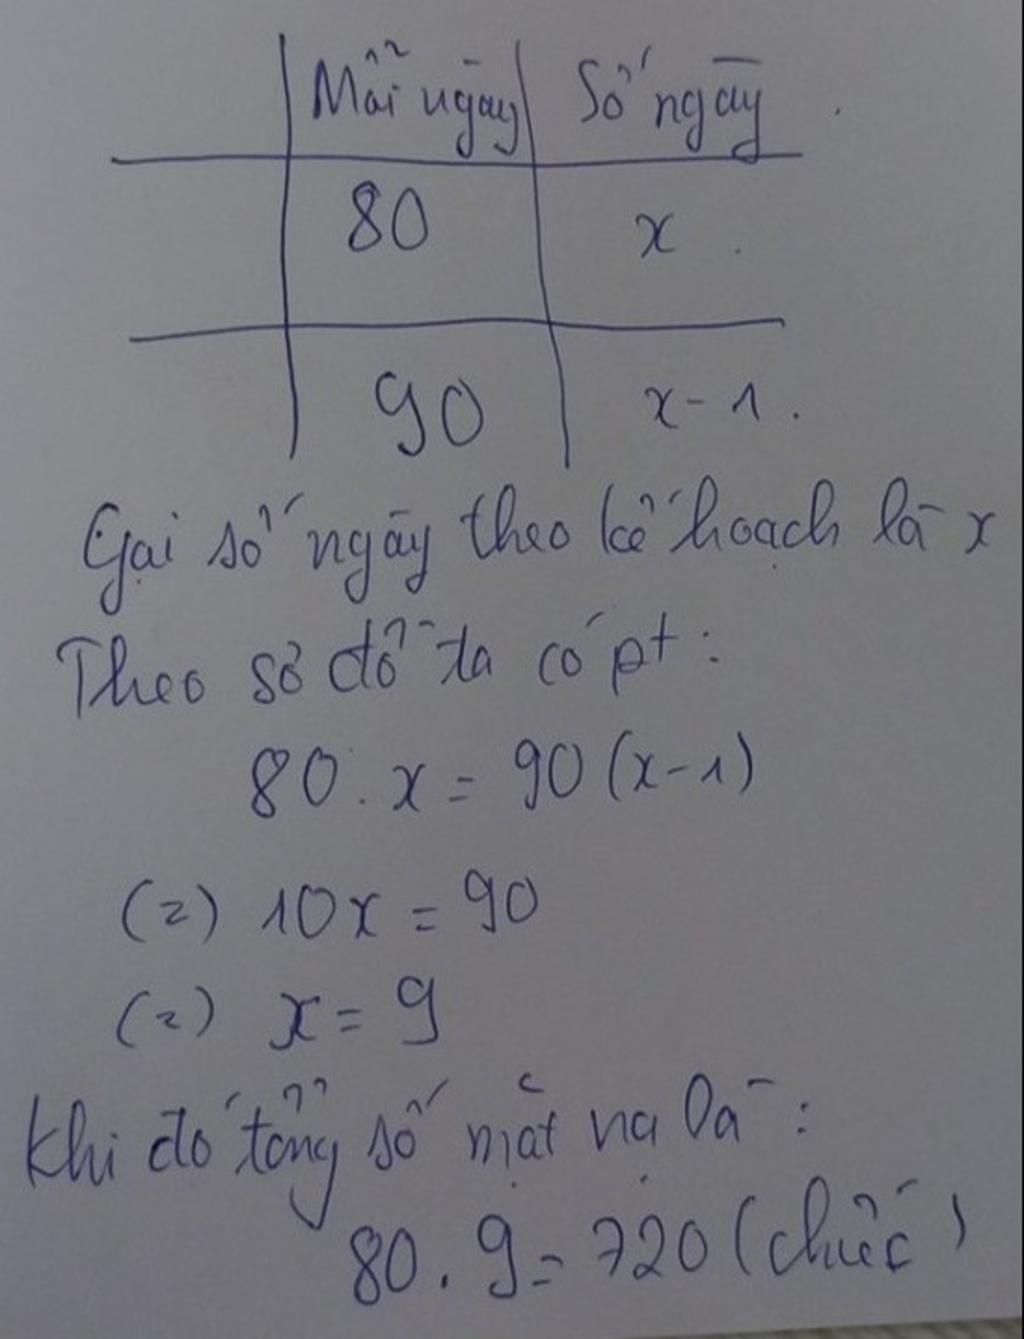 Mỗi ngày Số ngày
80 x
90 x-1.
Gọi số ngày theo kế hoạch là x
Theo sơ đồ ta có pt:
80. x = 90(x-1)
(=) 10x = 90
(=) x = 9
Khi đó tổng số mặt nạ là:
80. 9 = 720 (chiếc)